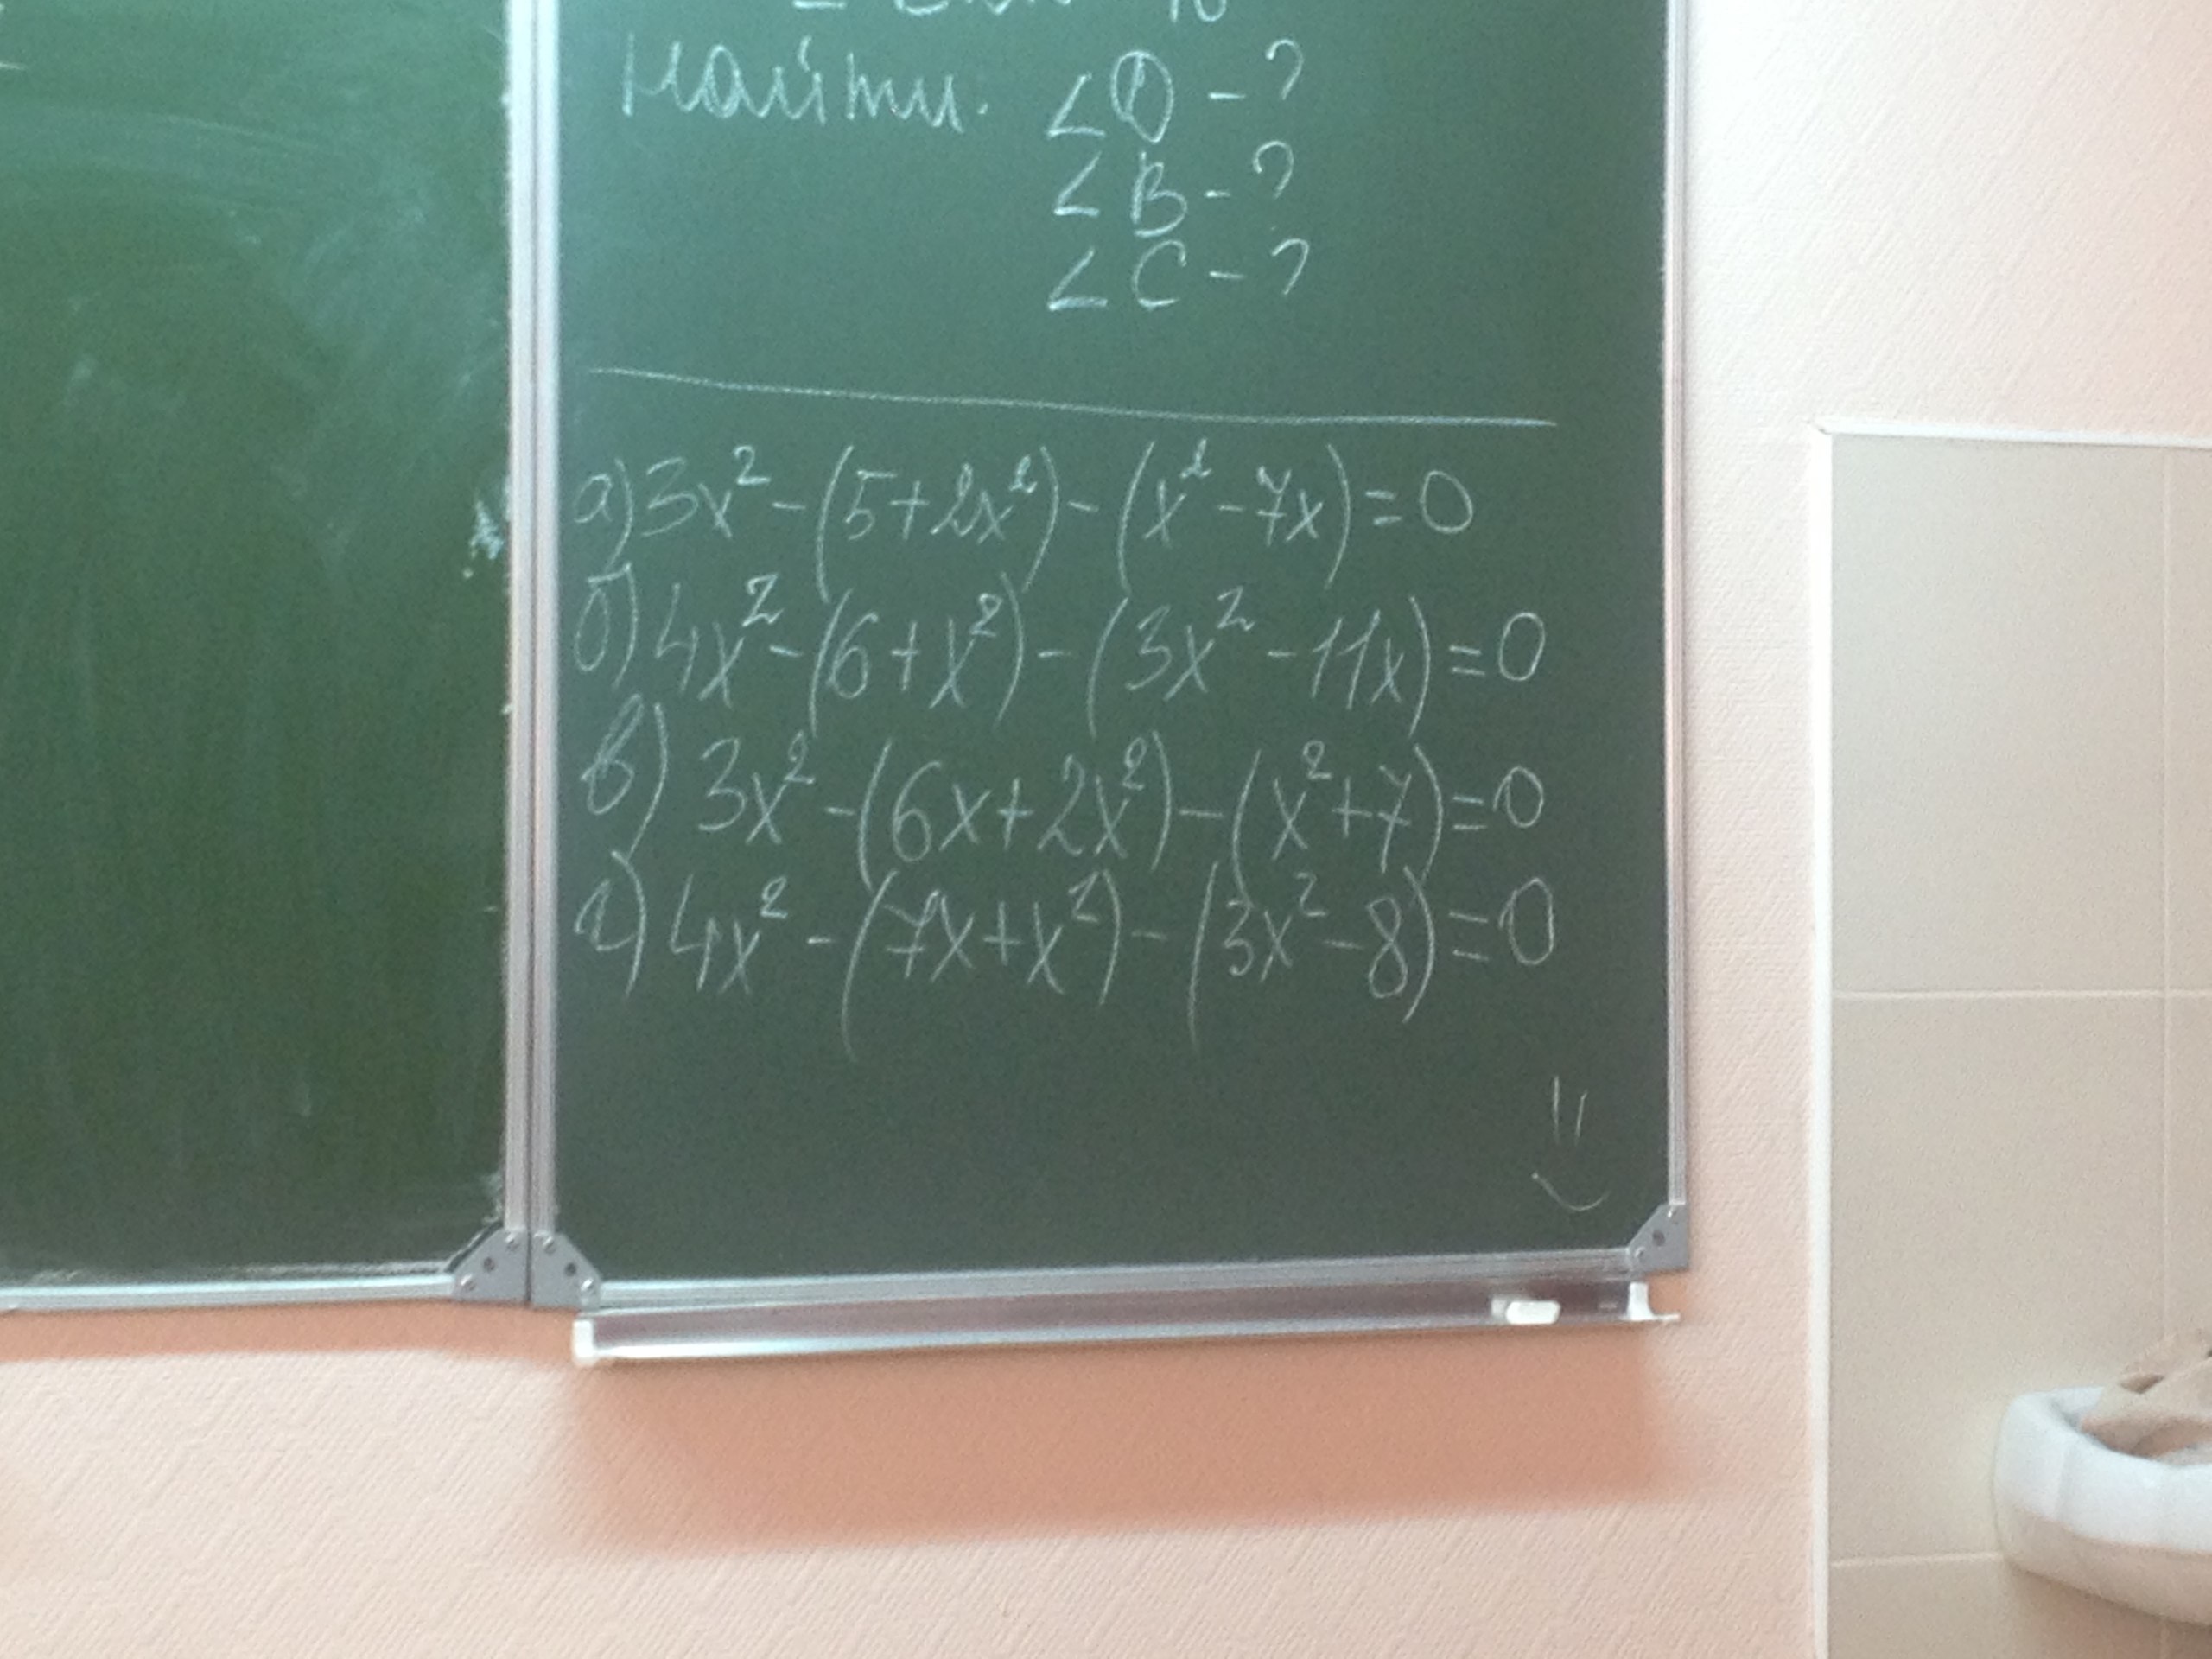 Найти: ∠D - ?
∠B - ?
∠C - ?
а) 3x² - (5 + 2x²) - (x² - 7x) = 0
б) 4x² - (6 + x²) - (3x² - 11x) = 0
в) 3x² - (6x + 2x²) - (x² + 7) = 0
г) 4x² - (7x + x²) - (3x² - 8) = 0